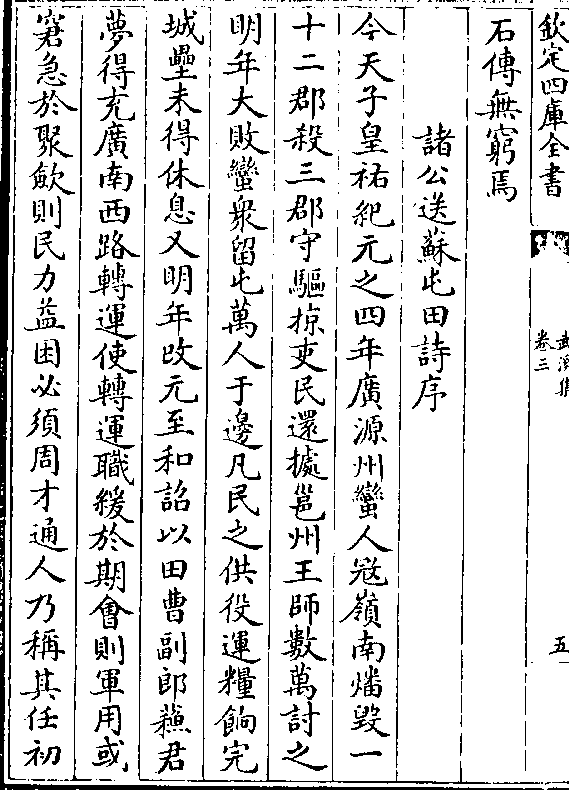 欽定四庫全書
武溪集
卷三
五
石傳無窮焉
諸公送蘇屯田詩序
今天子皇祐紀元之四年廣源州蠻人寇嶺南燔毀一
十二郡殺三郡守驅掠吏民還據邕州王師數萬討之
明年大敗蠻衆留屯萬人于邊凡民之供役運糧餉完
城壘未得休息又明年改元至和詔以田曹副郎蘓君
夢得充廣南西路轉運使轉運職緩於期會則軍用或
窘急於聚斂則民力益困必須周才通人乃稱其任初